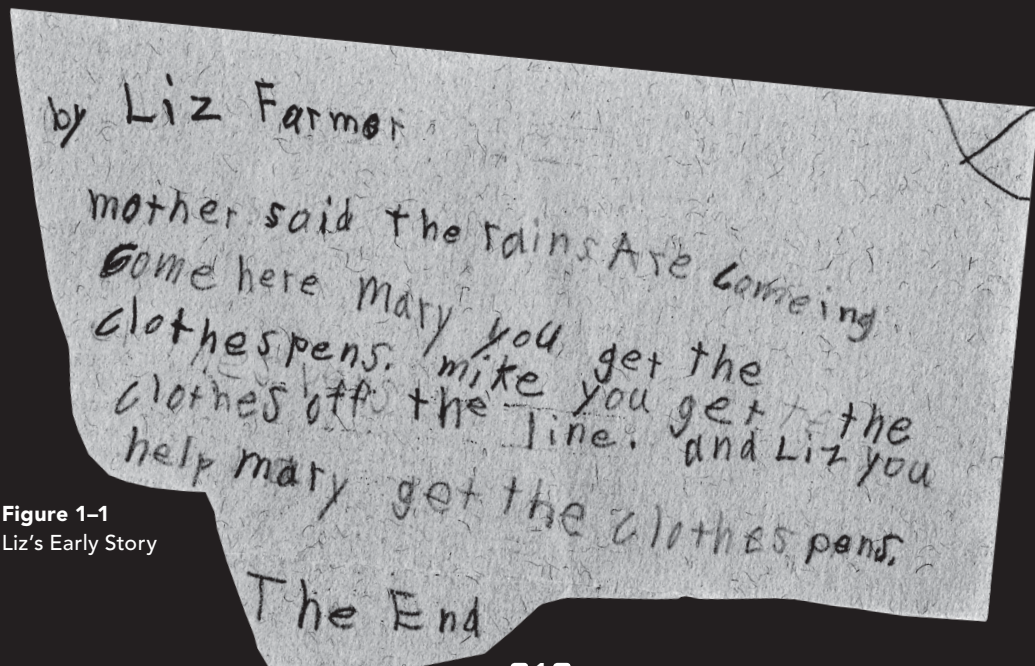 by Liz Farmer
mother said the rains Are comeing
Come here mary you get the
clothespens. mike you get the
clothes off the line. and Liz you
help mary get the clothespens.
The End
Figure 1–1
Liz's Early Story